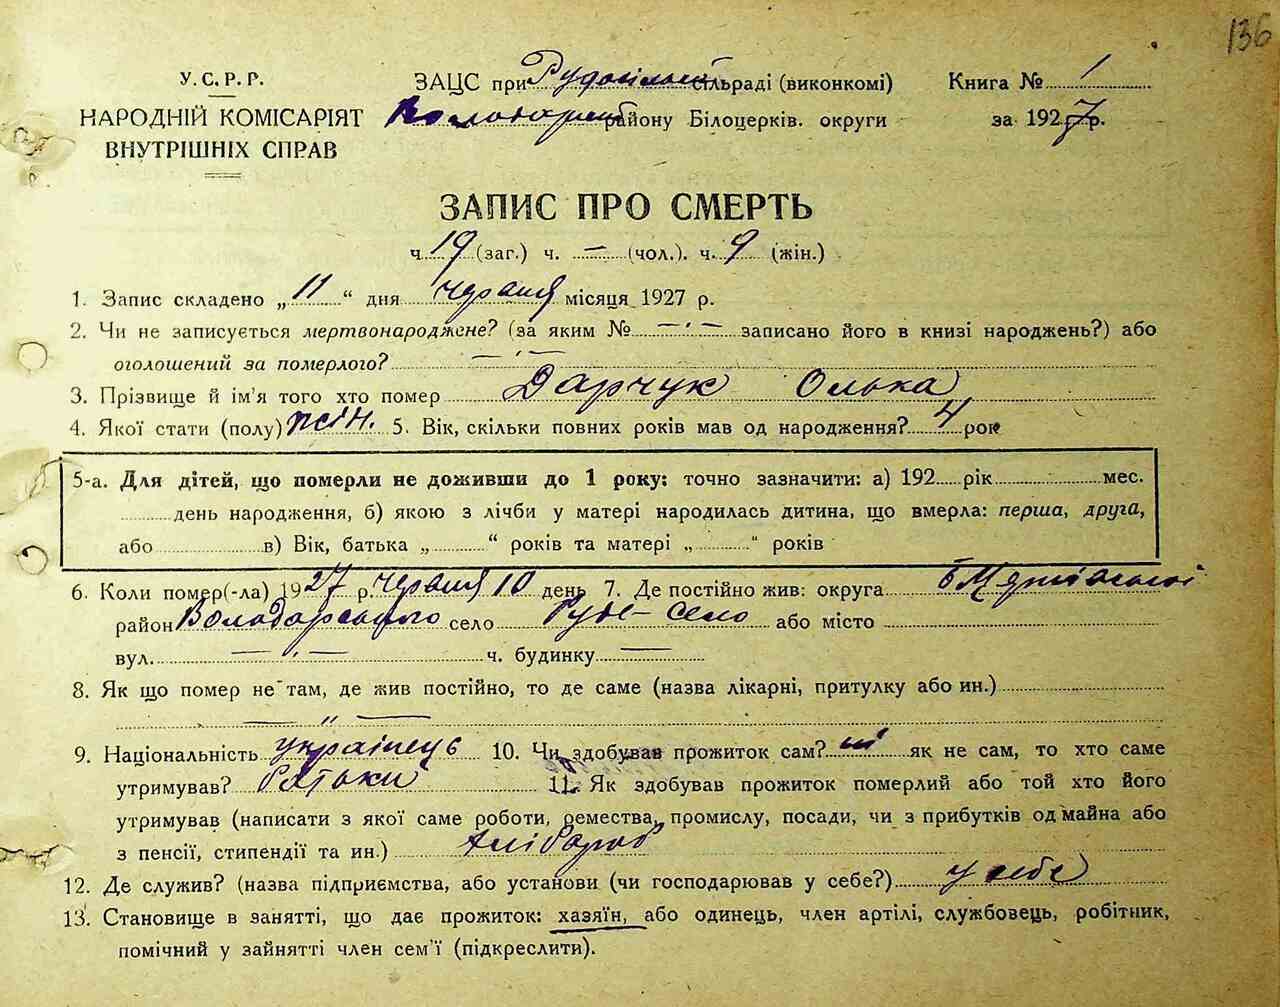 136
У.С.Р.Р.
НАРОДНІЙ КОМІСАРІЯТ
ВНУТРІШНІХ СПРАВ
ЗАЦС при Рудосільській сільраді (виконкомі)
Володарськ району Білоцерків. округи
Книга № 1
за 1927 р.
ЗАПИС ПРО СМЕРТЬ
ч. 19 (заг.) ч. — (чол.). ч. 9 (жін.)
1. Запис складено „ 11 “ дня червня місяця 1927 р.
2. Чи не записується мертвонароджене? (за яким № — · — записано його в книзі народжень?) або
оголошений за померлого? — · —
3. Прізвище й ім'я того хто помер Дарчук Олька
4. Якої стати (полу) жін. 5. Вік, скільки повних років мав од народження? 4 рок
5-а. Для дітей, що померли не доживши до 1 року: точно зазначити: а) 192 рік мес.
день народження, б) якою з лічби у матері народилась дитина, що вмерла: перша, друга,
або в) Вік, батька „ “ років та матері „ “ років
6. Коли помер(-ла) 1927 р. червня 10 день 7. Де постійно жив: округа
район Володарського село Руде-Село або місто
вул. — · — ч. будинку —
8. Як що помер не там, де жив постійно, то де саме (назва лікарні, притулку або ин.)
— „ —
9. Національність українець 10. Чи здобував прожиток сам? ні як не сам, то хто саме
утримував? батьки 11. Як здобував прожиток померлий або той хто його
утримував (написати з якої саме роботи, ремества, промислу, посади, чи з прибутків од майна або
з пенсії, стипендії та ин.) хлібороб
12. Де служив? (назва підприємства, або установи (чи господарював у себе?) у себе
13. Становище в занятті, що дає прожиток: хазяїн, або одинець, член артілі, службовець, робітник,
помічний у зайнятті член сем'ї (підкреслити).